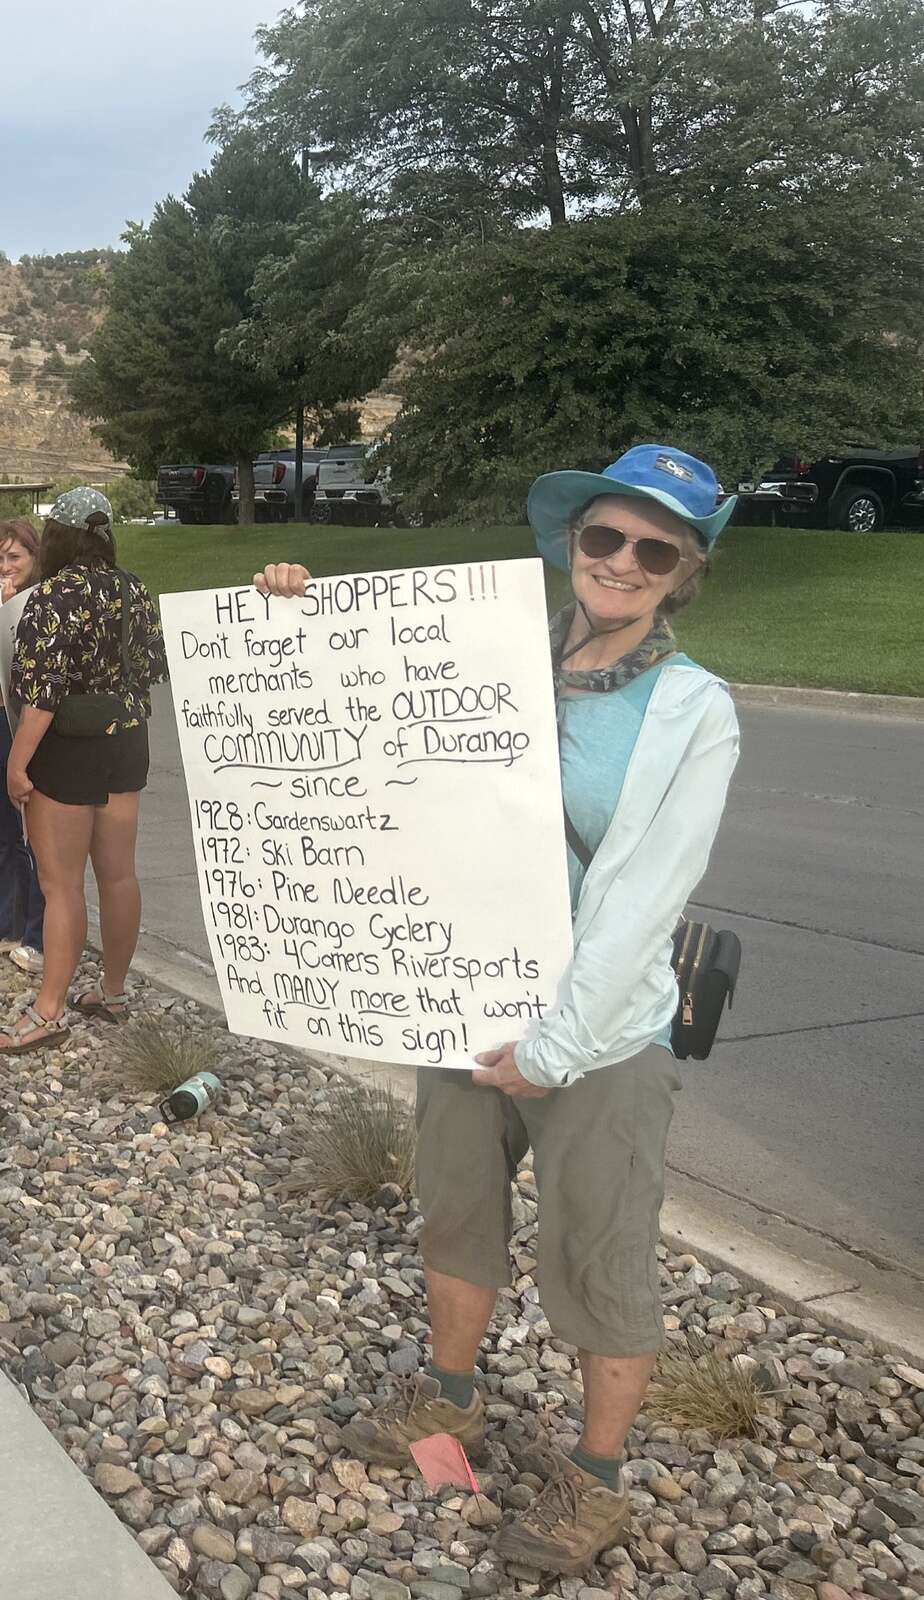 HEY SHOPPERS!!!
Don't forget our local
merchants who have
faithfully served the OUTDOOR
COMMUNITY of Durango
~ since ~
1928: Gardenswartz
1972: Ski Barn
1976: Pine Needle
1981: Durango Cyclery
1983: 4Corners Riversports
And MANY more that won't
fit on this sign!
OR